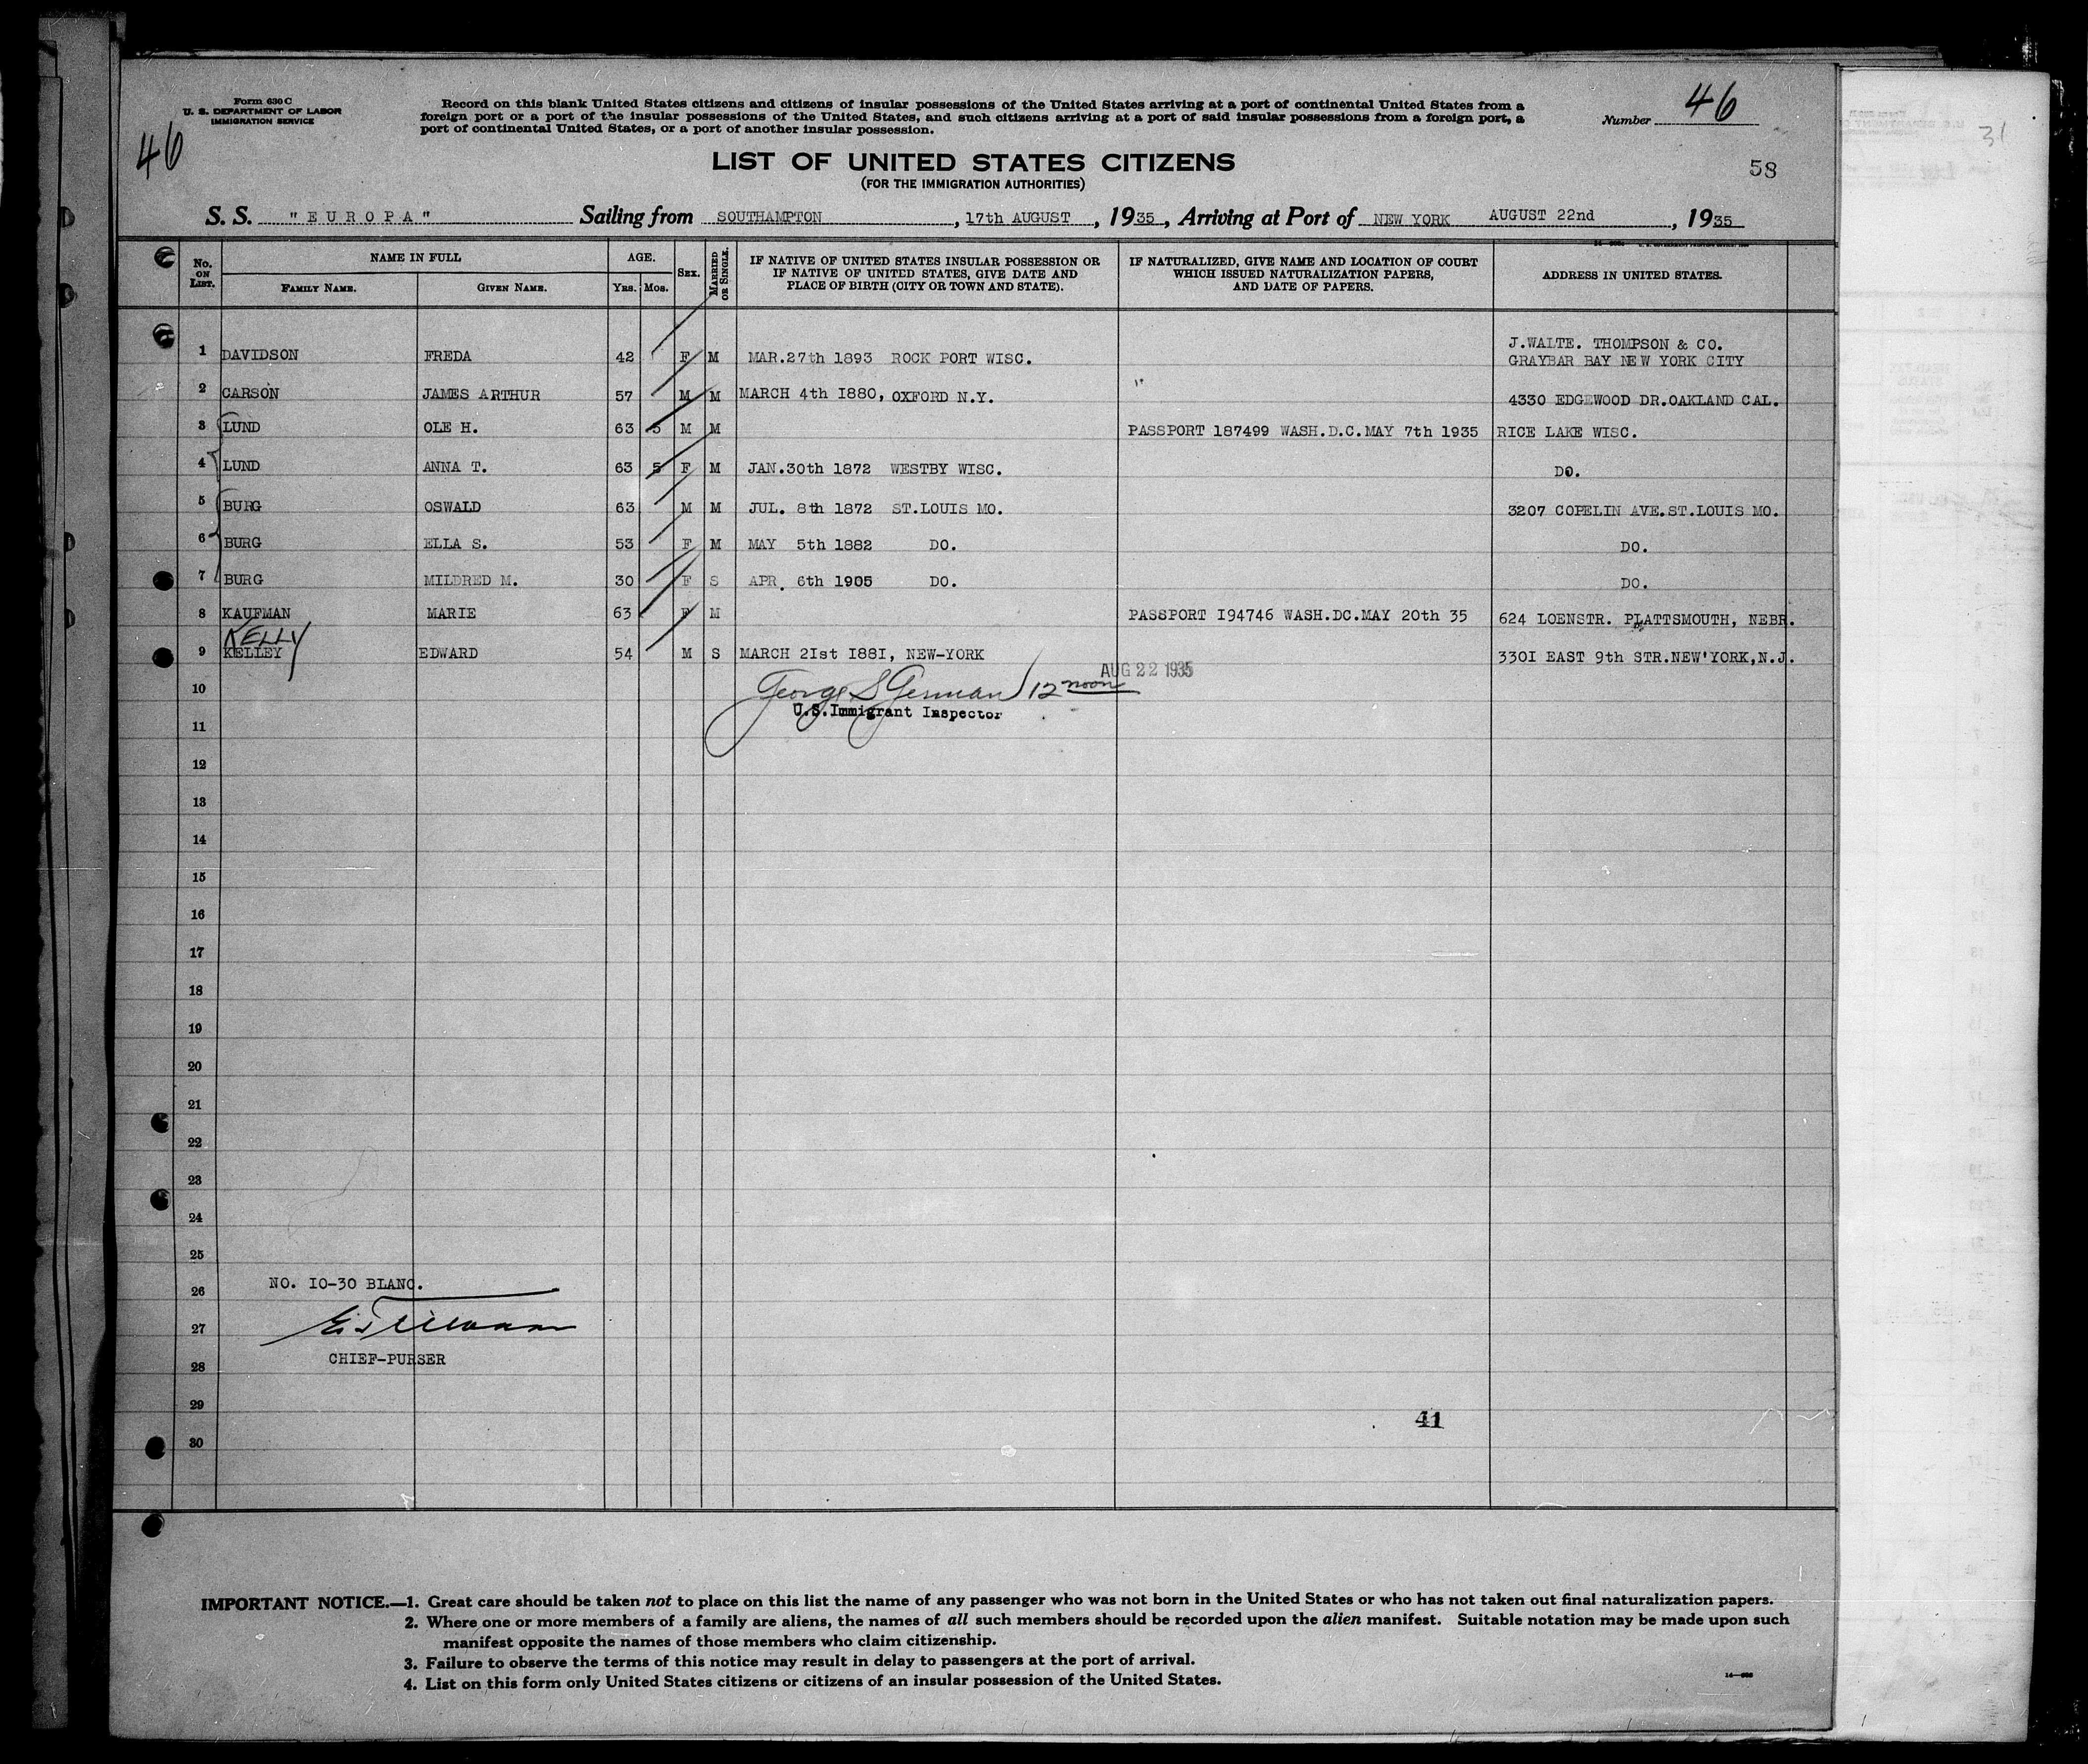 Form 630 C
U. S. DEPARTMENT OF LABOR
IMMIGRATION SERVICE
46
Record on this blank United States citizens and citizens of insular possessions of the United States arriving at a port of continental United States from a
foreign port or a port of the insular possessions of the United States, and such citizens arriving at a port of said insular possessions from a foreign port, a
port of continental United States, or a port of another insular possession.
Number 46
LIST OF UNITED STATES CITIZENS
(FOR THE IMMIGRATION AUTHORITIES)
58
31
S. S. "EUROPA" Sailing from SOUTHAMPTON, 17th AUGUST, 1935, Arriving at Port of NEW YORK AUGUST 22nd, 1935
No. ON LIST. NAME IN FULL FAMILY NAME. GIVEN NAME. AGE. YRS. MOS. SEX. MARRIED OR SINGLE. IF NATIVE OF UNITED STATES INSULAR POSSESSION OR IF NATIVE OF UNITED STATES, GIVE DATE AND PLACE OF BIRTH (CITY OR TOWN AND STATE). IF NATURALIZED, GIVE NAME AND LOCATION OF COURT WHICH ISSUED NATURALIZATION PAPERS, AND DATE OF PAPERS. ADDRESS IN UNITED STATES.
1 DAVIDSON FREDA 42 F M MAR.27th 1893 ROCK PORT WISC. J.WALTE. THOMPSON & CO.
GRAYBAR BAY NEW YORK CITY
2 CARSON JAMES ARTHUR 57 M M MARCH 4th I880, OXFORD N.Y. " 4330 EDGEWOOD DR.OAKLAND CAL.
3 LUND OLE H. 63 5 M M PASSPORT 187499 WASH.D.C.MAY 7th 1935 RICE LAKE WISC.
4 LUND ANNA T. 63 5 F M JAN.30th 1872 WESTBY WISC. DO.
5 BURG OSWALD 63 M M JUL. 8th 1872 ST.LOUIS MO. 3207 COPELIN AVE.ST.LOUIS MO.
6 BURG ELLA S. 53 F M MAY 5th 1882 DO. DO.
7 BURG MILDRED M. 30 F S APR. 6th 1905 DO. DO.
8 KAUFMAN MARIE 63 F M PASSPORT I94746 WASH.DC.MAY 20th 35 624 LOENSTR. PLATTSMOUTH, NEBR.
KELLY
9 KELLEY EDWARD 54 M S MARCH 2Ist I88I, NEW-YORK 330I EAST 9th STR.NEW'YORK,N.J.
AUG 22 1935
10 George S German 12 noon
U.S.Immigrant Inspector
11
12
13
14
15
16
17
18
19
20
21
22
23
24
25
NO. IO-30 BLANC.
26
27
CHIEF-PURSER
28
29
41
30
IMPORTANT NOTICE.—1. Great care should be taken not to place on this list the name of any passenger who was not born in the United States or who has not taken out final naturalization papers.
2. Where one or more members of a family are aliens, the names of all such members should be recorded upon the alien manifest. Suitable notation may be made upon such
manifest opposite the names of those members who claim citizenship.
3. Failure to observe the terms of this notice may result in delay to passengers at the port of arrival.
4. List on this form only United States citizens or citizens of an insular possession of the United States.